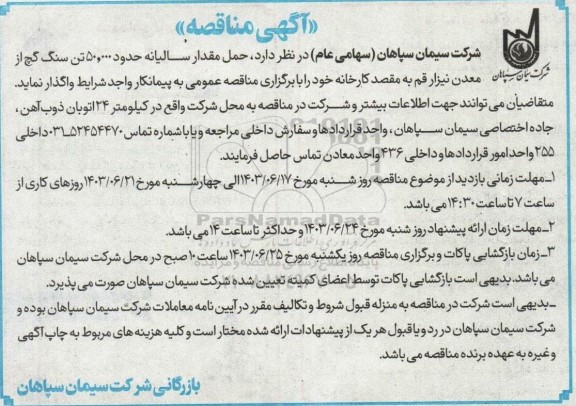 «آگهی مناقصه»
شرکت سیمان سپاهان
شرکت سیمان سپاهان (سهامی عام) در نظر دارد، حمل مقدار سالیانه حدود ۵۰,۰۰۰ تن سنگ گچ از
معدن نیزار قم به مقصد کارخانه خود را با برگزاری مناقصه عمومی به پیمانکار واجد شرایط واگذار نماید.
متقاضیان می توانند جهت اطلاعات بیشتر و شرکت در مناقصه به محل شرکت واقع در کیلومتر ۲۴ اتوبان ذوب آهن ،
جاده اختصاصی سیمان سپاهان ، واحد قراردادها و سفارش داخلی مراجعه و یا با شماره تماس ۵۲۴۵۴۴۷۰-۰۳۱ داخلی
۲۵۵ واحد امور قراردادها و داخلی ۴۳۶ واحد معادن تماس حاصل فرمایند.
۱ـ مهلت زمانی بازدید از موضوع مناقصه روز شنبه مورخ ۱۴۰۳/۰۶/۱۷ الی چهارشنبه مورخ ۱۴۰۳/۰۶/۲۱ روزهای کاری از
ساعت ۷ تا ساعت ۱۴:۳۰ می باشد.
۲ـ مهلت زمان ارائه پیشنهاد روز شنبه مورخ ۱۴۰۳/۰۶/۲۴ و حداکثر تا ساعت ۱۴ می باشد.
۳ـ زمان بازگشایی پاکات و برگزاری مناقصه روز یکشنبه مورخ ۱۴۰۳/۰۶/۲۵ ساعت ۱۰ صبح در محل شرکت سیمان سپاهان
می باشد. بدیهی است بازگشایی پاکات توسط اعضای کمیته تعیین شده شرکت سیمان سپاهان صورت می پذیرد.
ـ بدیهی است شرکت در مناقصه به منزله قبول شروط و تکالیف مقرر در آیین نامه معاملات شرکت سیمان سپاهان بوده و
شرکت سیمان سپاهان در رد و یا قبول هر یک از پیشنهادات ارائه شده مختار است و کلیه هزینه های مربوط به چاپ آگهی
و غیره به عهده برنده مناقصه می باشد.
بازرگانی شرکت سیمان سپاهان
ParsNamadData